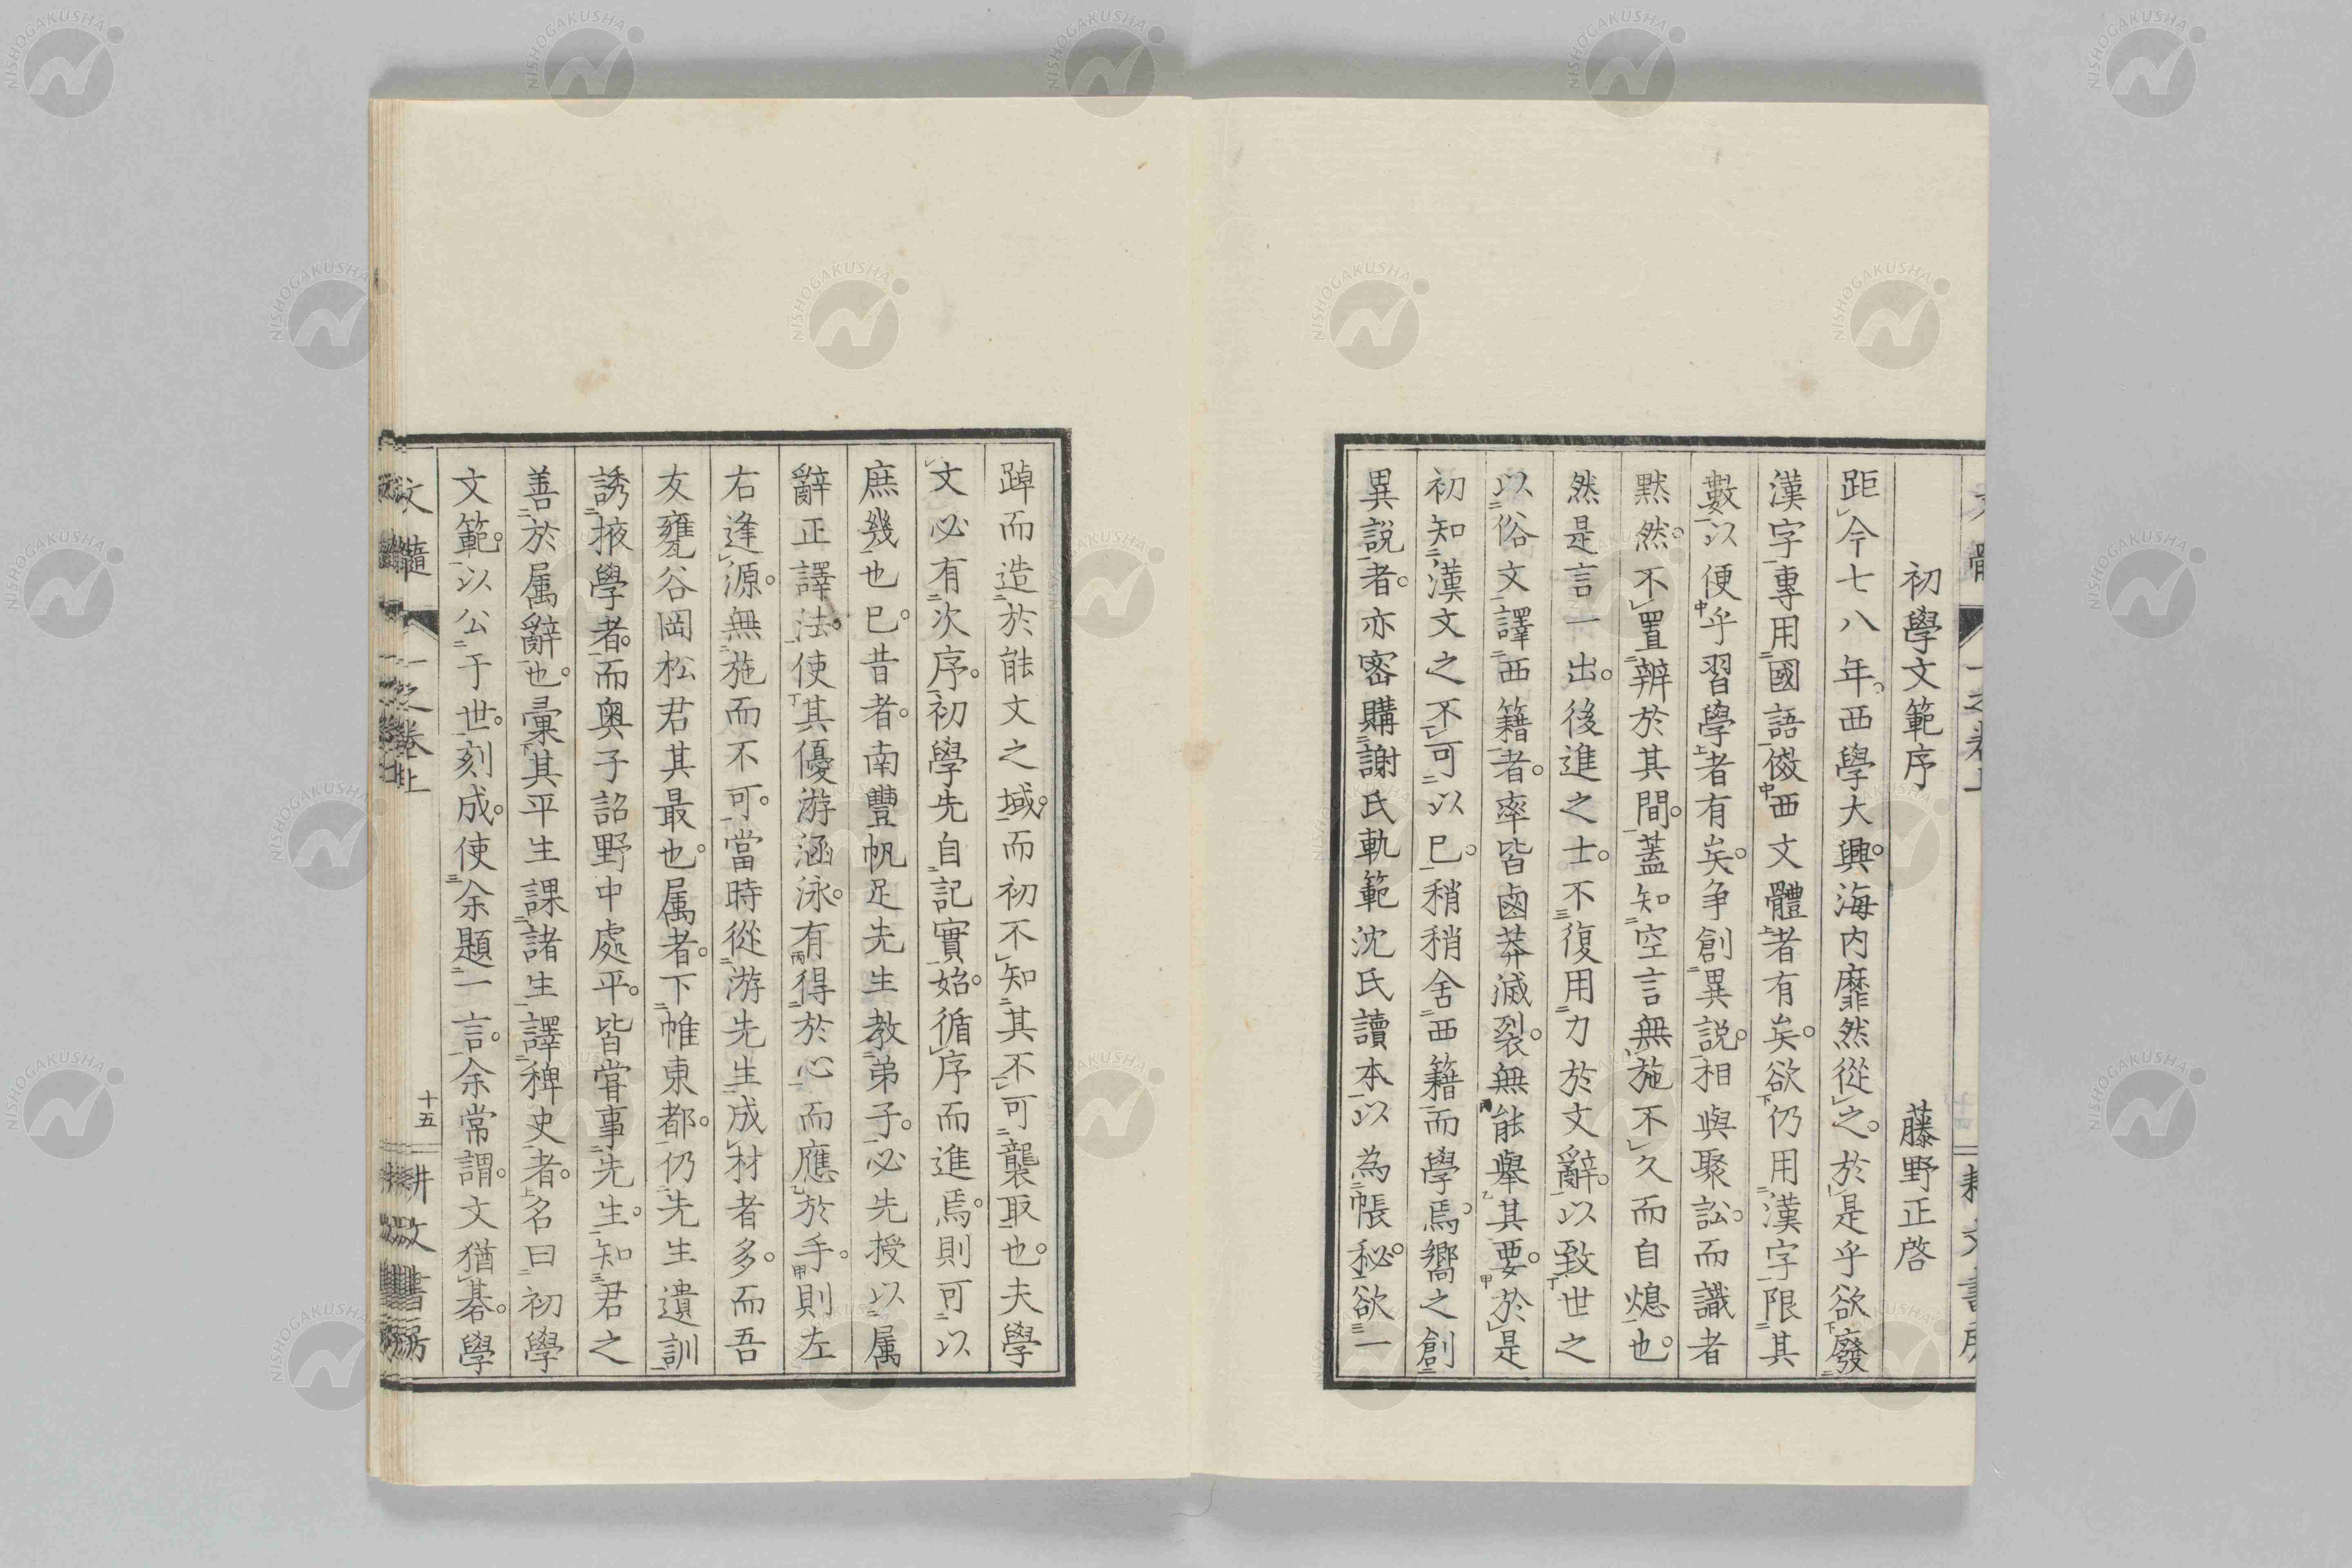 初學文範序 藤野正啓
距今七八年。西學大興。海内靡然從之。於是乎欲廢
漢字專用國語俲西文體者有矣。欲仍用漢字限其
數以便乎習學者有矣。爭創異説。相與聚訟。而識者
黙然。不置辨於其間。蓋知空言無施不久而自熄也。
然是言一出。後進之士。不復用力於文辭。以致世之
以俗文譯西籍者。率皆鹵莽滅裂。無能舉其要。於是
初知漢文之不可以已。稍稍舍西籍而學焉。嚮之創
異説者。亦密購謝氏軌範沈氏讀本以為帳秘。欲一
踔而造於能文之域。而初不知其不可襲取也。夫學
文必有次序。初學先自記實始。循序而進焉。則可以
庶幾也已。昔者。南豐帆足先生教弟子。必先授以属
辭正譯法。使其優游涵泳。有得於心而應於手。則左
右逢源。無施而不可。當時從游先生成材者多。而吾
友甕谷岡松君其最也。属者。下帷東都。仍先生遺訓
誘掖學者。而奥子詔野中處平。皆嘗事先生。知君之
善於属辭也。彙其平生課諸生譯稗史者。名曰初學
文範。以公于世。刻成。使余題一言。余常謂。文猶碁。學
文髓 一之卷上 十五 耕文書房